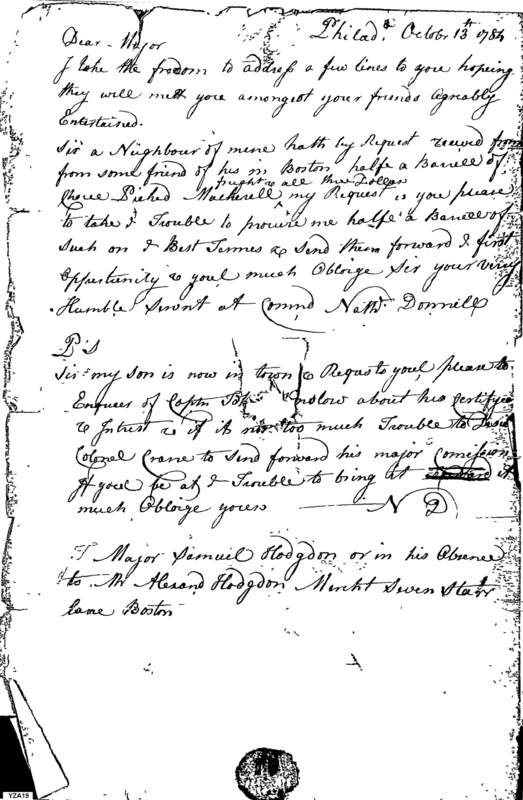 Philad.a Octobr 13th 1784
Dear Major
I take the freedom to address a few lines to you hopeing
they will mett you amongest your friends agreably
Entertained.
Sir a Nighbour of mine hath by Request receved from
from some friend of his in Boston halfe a Barrell of
fright & all three Dollars
Choice Picked Mackerell my Request is you please
to take & Trouble to procure me halfe a Barrell of
such on & Best Termes & send them forward & first
oppertunity & youl much Obloige Sir your Verey
Humble Servnt at Comnd Nathl. Donnell
P S
Sir my son is now in town & Requsts youl please to
Enqueer of Captn about his Certifyce
& Intrest & if it not too much Trouble to Desir
Colonel Crane to send forward his major Comission
If youl be at & Trouble to bring it
much Obloige yours N D
T Major Samuel Hodgdon or in his Absence
to Mr Alexand Hodgdon Mercht Seven Starr
Lane Boston
YZA19